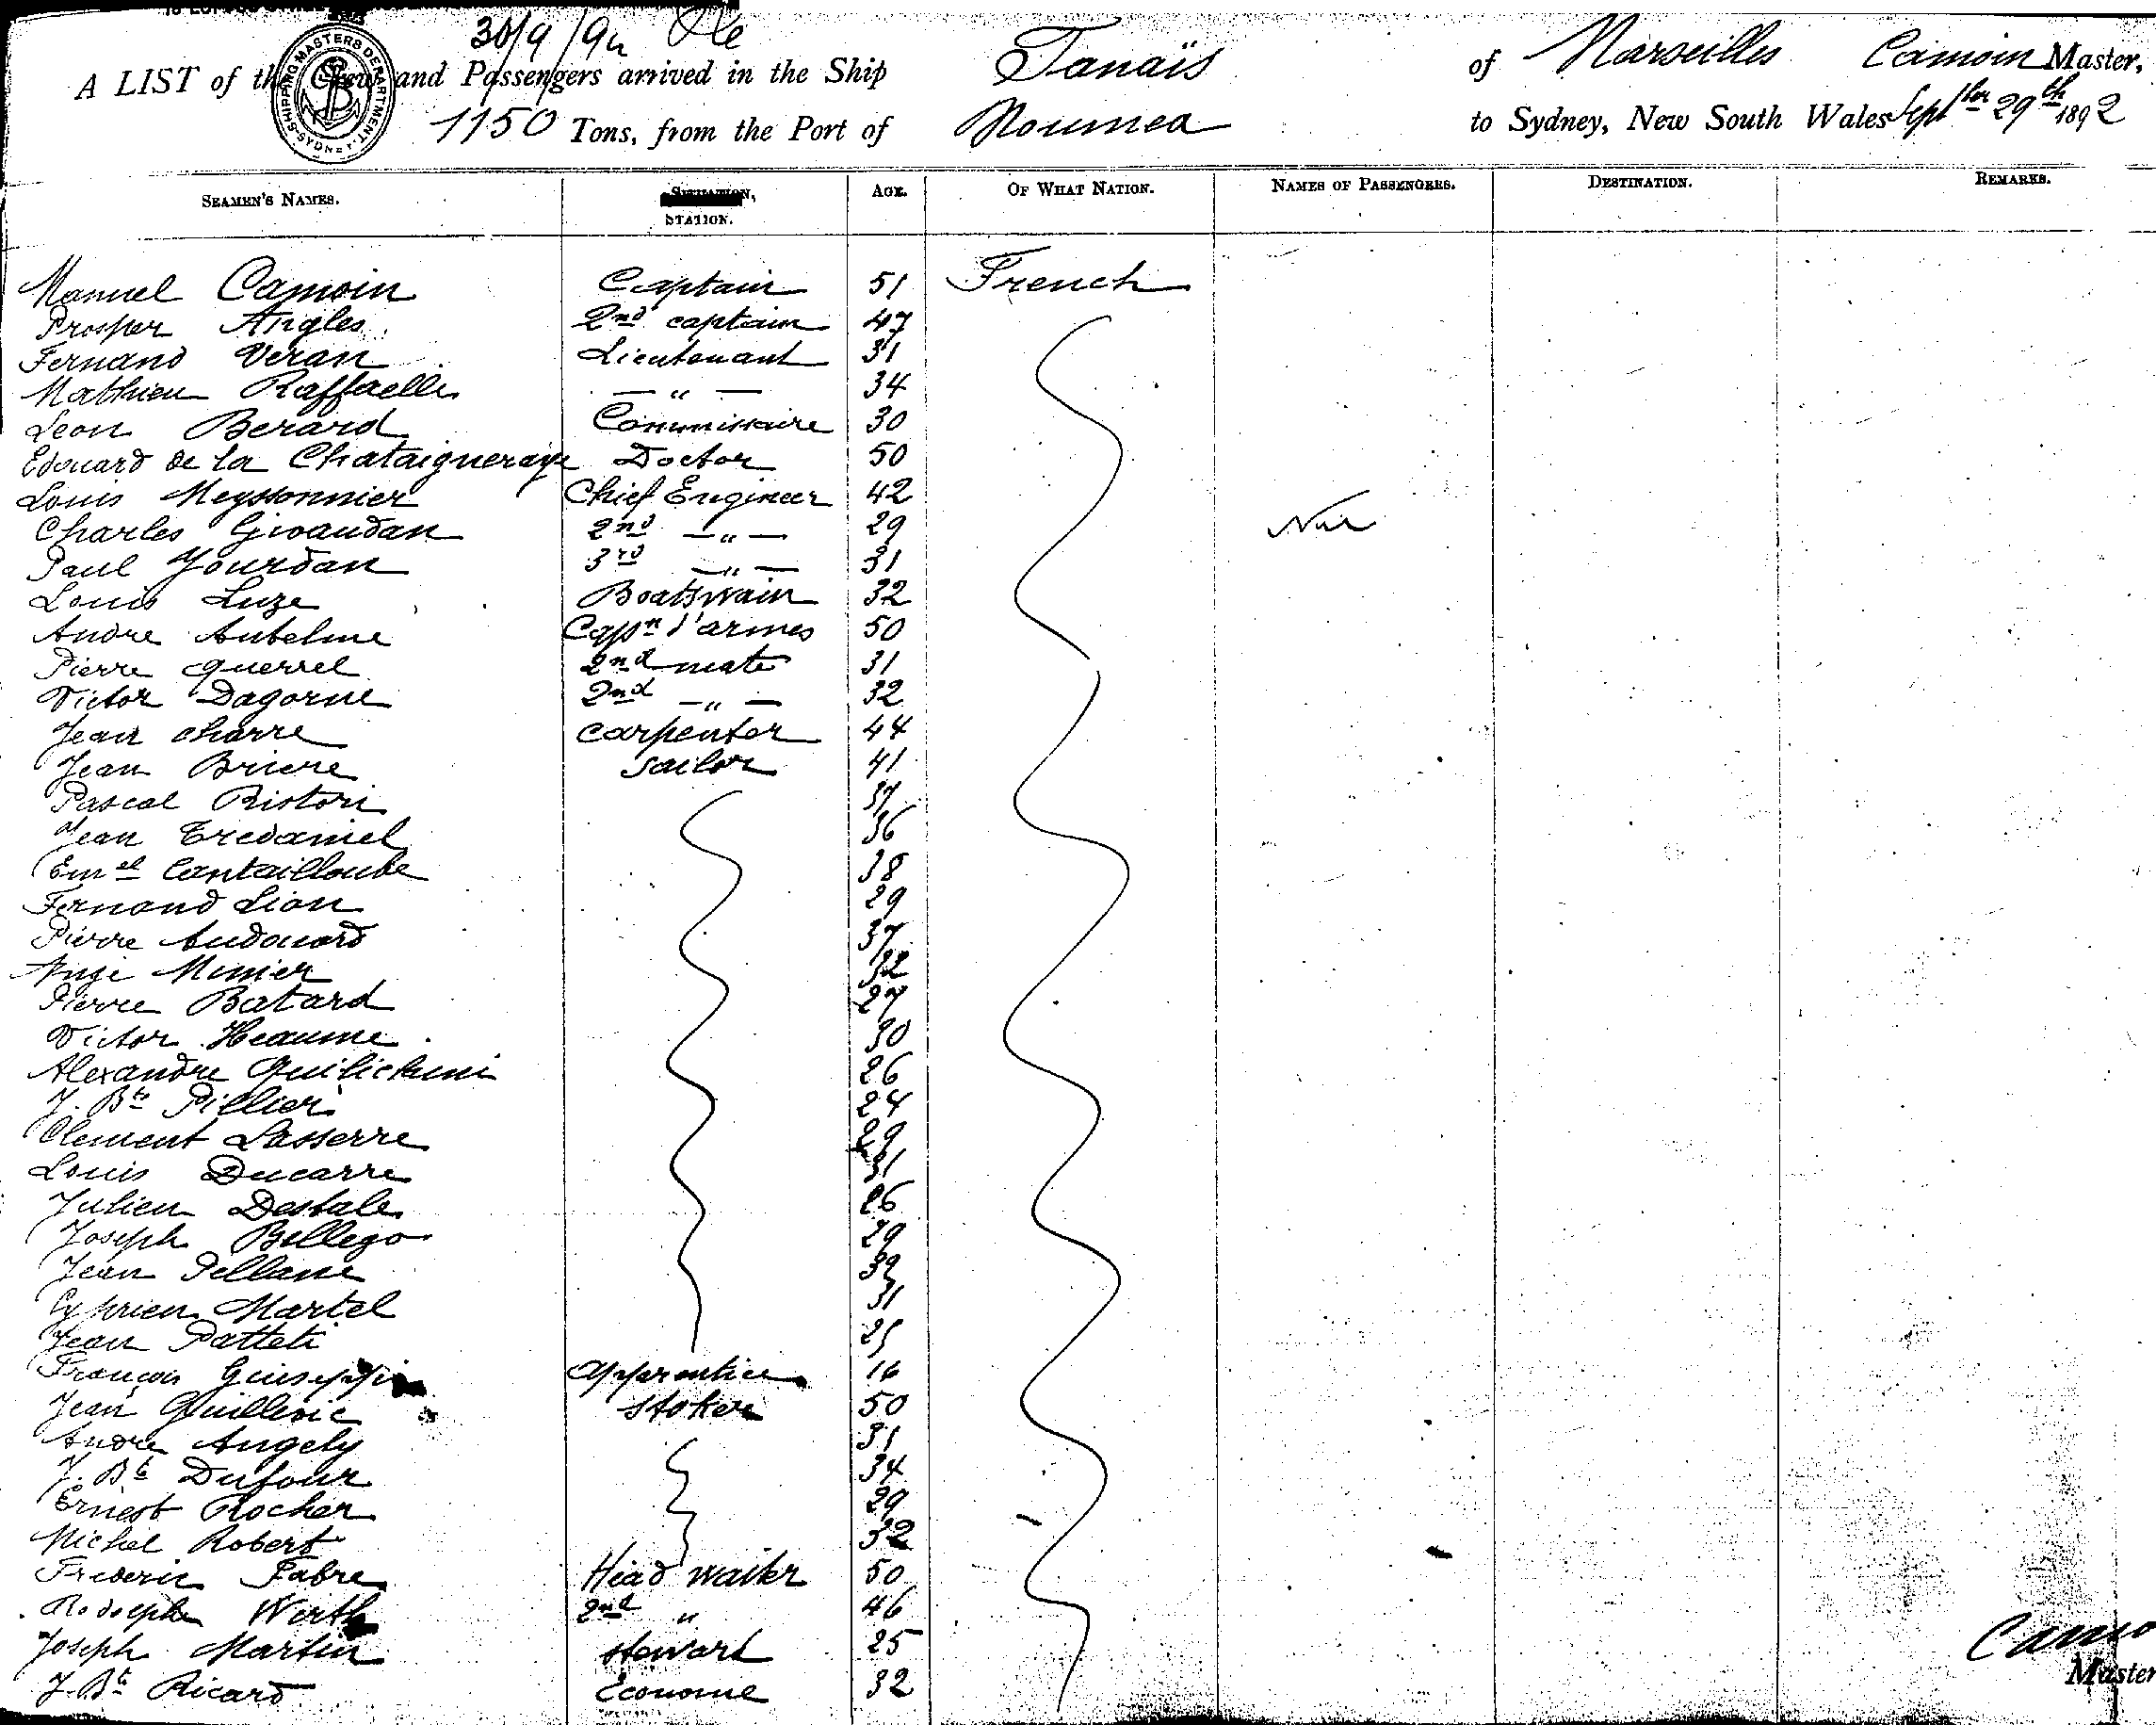 30/9/92
A LIST of the Crew and Passengers arrived in the Ship Tanaïs of Marseilles Camoin Master,
SHIPPING MASTERS DEPARTMENT SYDNEY
1150 Tons, from the Port of Noumea to Sydney, New South Wales Septber 29th 1892
SEAMEN'S NAMES. STATION. AGE. OF WHAT NATION. NAMES OF PASSENGERS. DESTINATION. REMARKS.
Manuel Camoin Captain 51 French
Prosper Angles 2nd captain 47
Fernand Veran Lieutenant 31
Mathieu Raffaelli — " — 34
Leon Berard Commissaire 30
Edouard de la Chataigneraye Doctor 50
Louis Meyssonnier Chief Engineer 42
Charles Givaudan 2nd — " — 29
Paul Jourdan 3rd — " — 31
Louis Luze Boatswain 32
Andre Antelme Capn d'armes 50
Pierre Querrel 2nd mate 31
Victor Dagorne 2nd — " — 32
Jean Charre carpenter 44
Jean Briere sailor 41
Pascal Ristori 37
Jean Tredaniel 36
Emel Cantailloube 38
Fernand Lion 29
Pierre Audouard 37
Ange Minier 32
Pierre Batard 27
Victor Heaume 30
Alexandre Quilichini 26
J. Bte Pillier 24
Clement Lasserre 29
Louis Ducarre 31
Julien Destale 26
Joseph Bellego 29
Jean Pellane 32
Cyprien Martel 31
Jean Patteti 25
François Guiseppi apprentice 16
Jean Guillevic stoker 50
Andre Angely 31
J. Bte Dufour 34
Ernest Rocher 29
Michel Robert 32
Frederic Fabre Head waiter 50
Rodolphe Werth 2nd " 46
Joseph Martin stewart 25
J. Bte Ricard Econome 32
Camo
Master